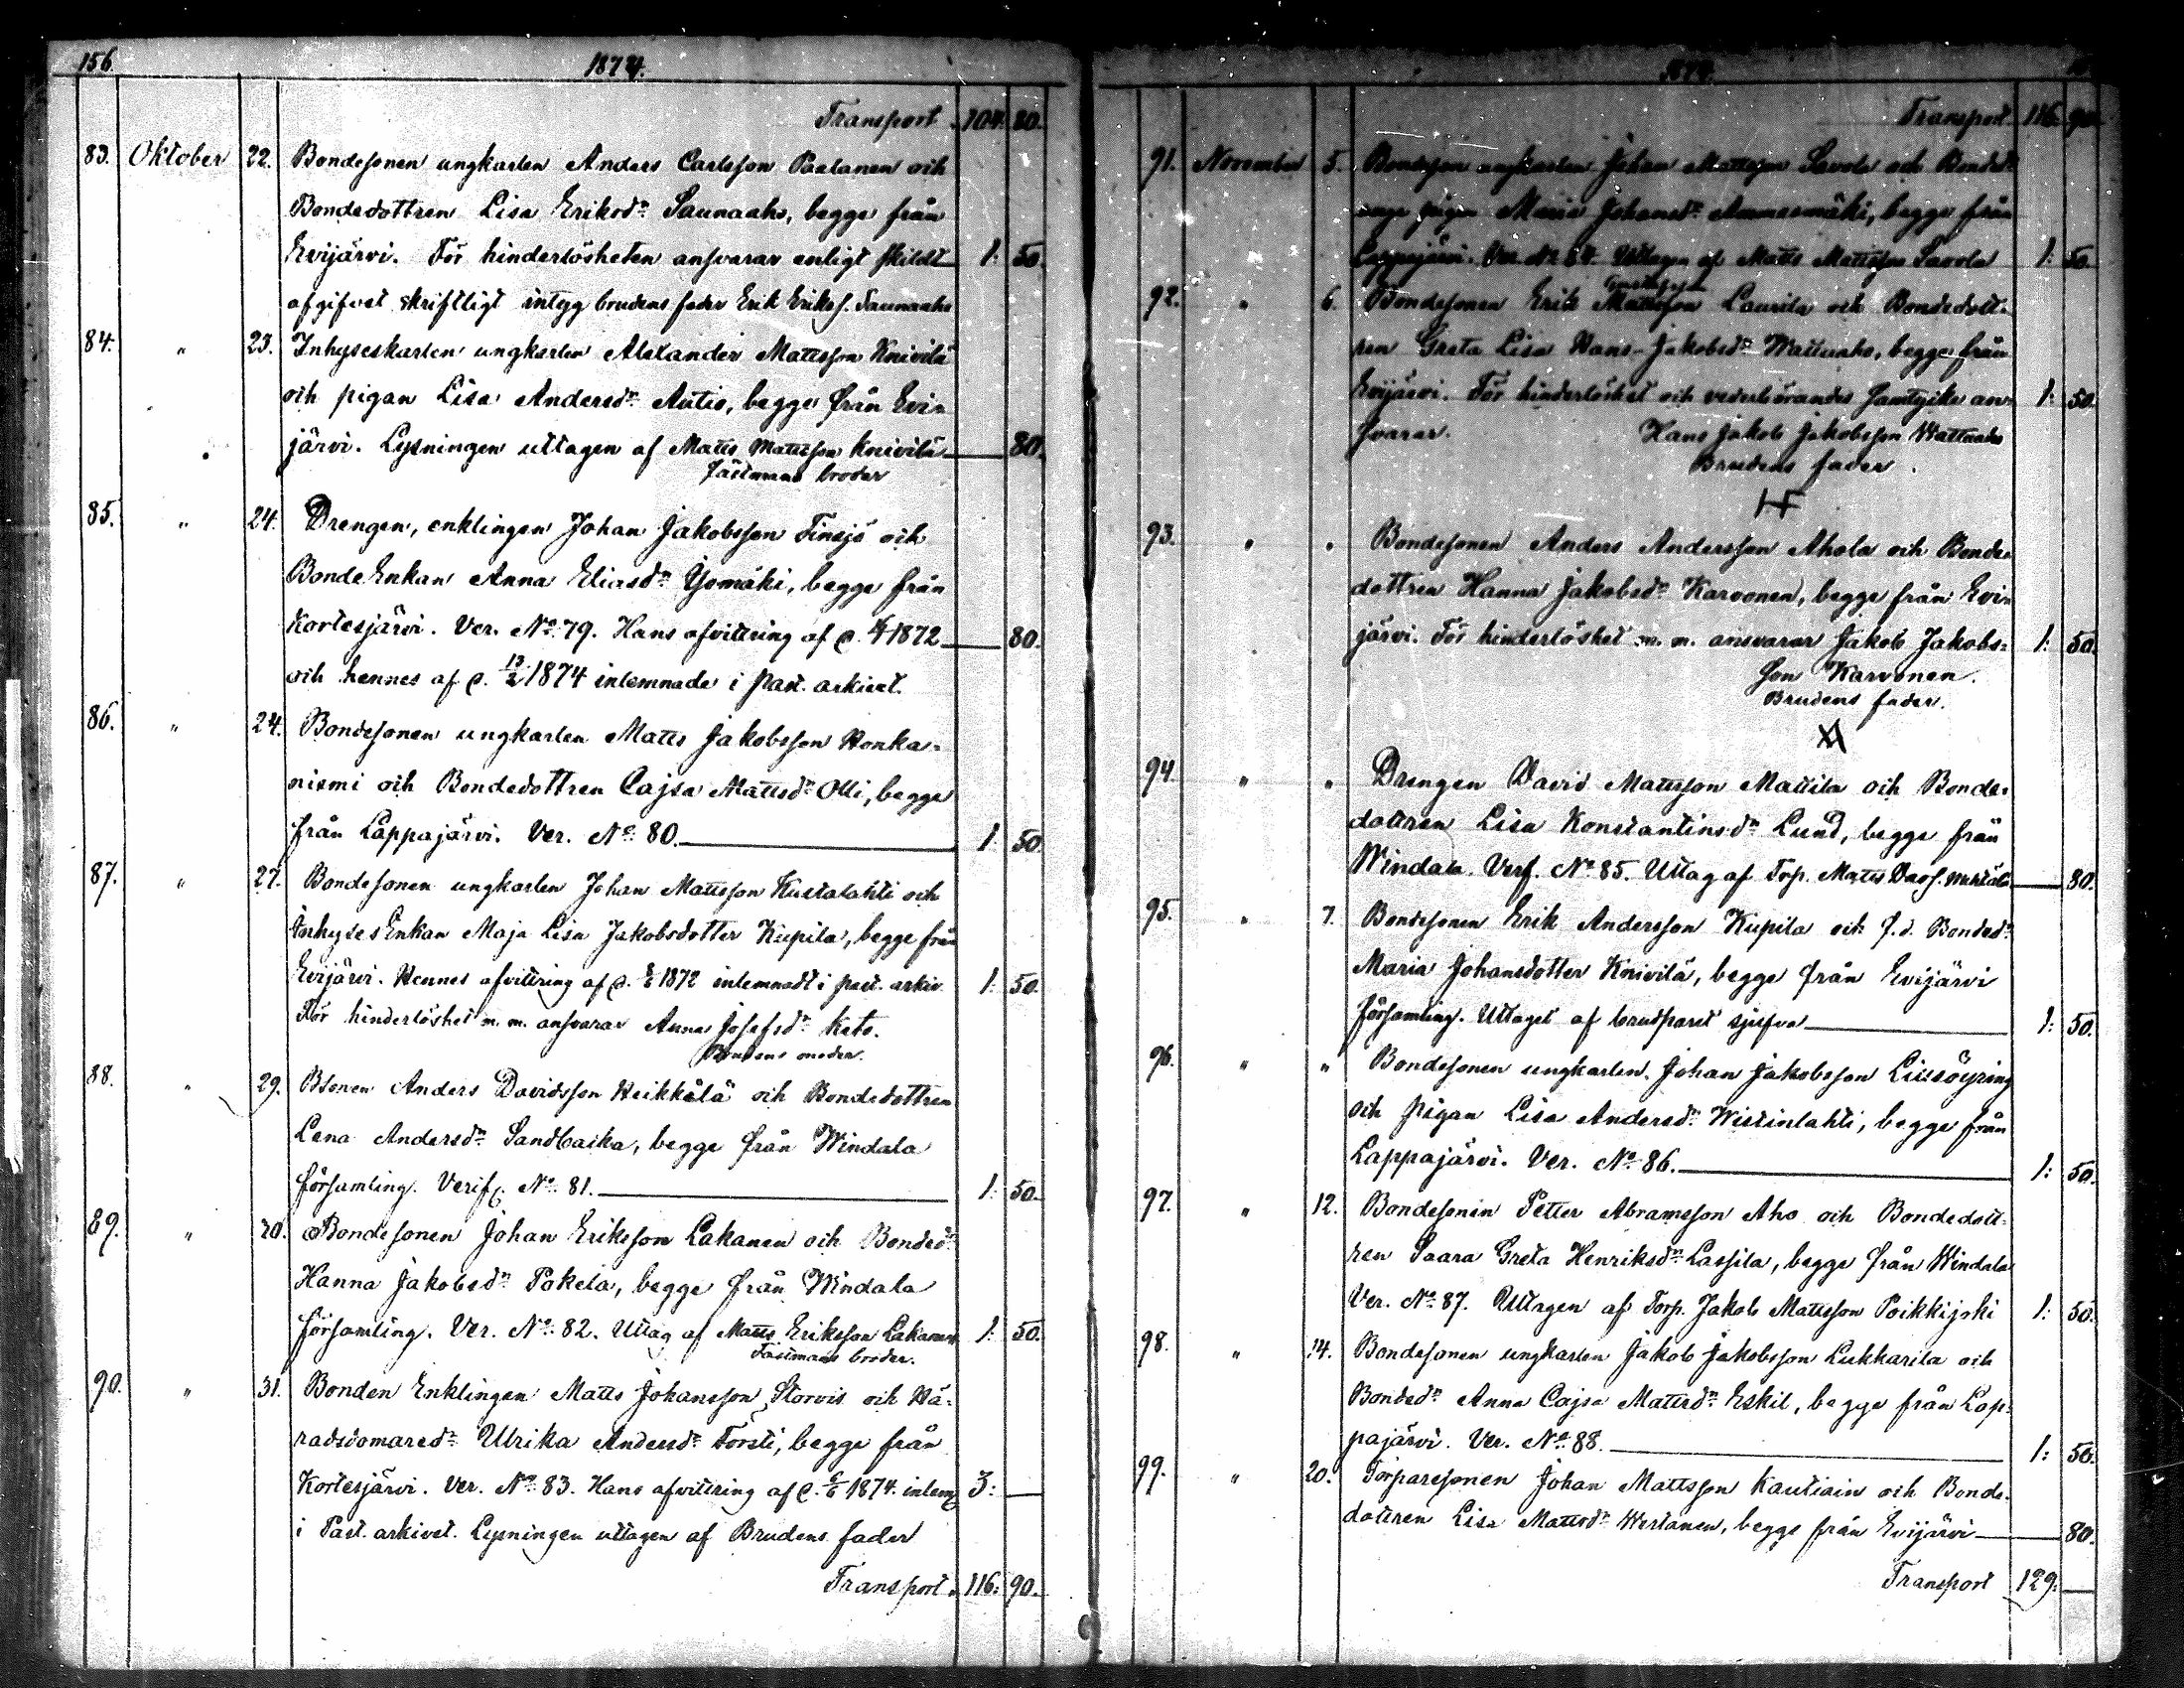 156.
1874.
Transport 104. 80.
83. Oktober 22. Bondesonen ungkarlen Anders Carlsson Paalanen och
Bondedottren Lisa Eriksdr Saunaaho, begge från
Evijärvi. För hinderlösheten ansvarar enligt skildt 1: 50.
afgifvet skriftligt intyg brudens fader Erik Erikss. Saunaaho
84. " 23. Inhyseskarlen ungkarlen Alexander Mattsson Knivilä
och pigan Lisa Andersdr Autio, begge från Evi=
järvi. Lysningen uttagen af Matts Mattsson Knivilä 80.
fästmans broder
85. " 24. Drengen, enklingen Johan Jakobsson Finsjö och
BondeEnkan Anna Eliasdr Yomäki, begge från
Kortesjärvi. Ver. No 79. Hans afvittring af d. 1872 80.
och hennes af d. 13/2 1874 inlemnade i past. arkivet.
86. " 24. Bondesonen ungkarlen Matts Jakobsson Honka=
niemi och Bondedottren Cajsa Mattsdr Olli, begge
från Lappajärvi. Ver. No 80. 1: 50.
87. " 27. Bondesonen ungkarlen Johan Mattsson Kustalahti och
InhysesEnkan Maja Lisa Jakobsdotter Kiipilä, begge från
Evijärvi. Hennes afvittring af d. 1872 inlemnadt i past. arkiv. 1: 50.
För hinderlöshet m. m. ansvarar Anna Josefsdr Keto.
Brudens moder.
88. " 29. Bsonen Anders Davidsson Heikkälä och Bondedottren
Lena Andersdr Sandbacka, begge från Windala
församling. Verif. No 81. 1: 50.
89. " 30. Bondesonen Johan Eriksson Lakanen och Bondedr
Hanna Jakobsdr Pokela, begge från Windala
församling. Ver. No 82. Uttag af Matts Eriksson Lakanen 1: 50.
Fästmans broder.
90. " 31. Bonden Enklingen Matts Johansson Storvis och Hä=
radsdomaredr Ulrika Andersdr Försti, begge från
Kortesjärvi. Ver. No 83. Hans afvittring af d. 1874. inlemn. 3: —
i Past. arkivet. Lysningen uttagen af Brudens fader
Transport 116: 90.
1874.
Transport 116. 90.
91. November 5. Bondesonen ungkarlen Johan Mattsson Savola och Bondedr
unga pigan Maria Johansdr Ammesmäki, begge från
Lappajärvi. Ver. No 84. Uttagen af Matts Mattsson Savola 1: 50.
92. " 6. Bondesonen Erik Mattsson Laurila och Bondedott=
ren Greta Lisa Hans-Jakobsdr Wattuaho, begge från
Evijärvi. För hinderlöshet och vederbörandes samtycke an= 1: 50.
svarar. Hans Jakob Jakobsson Wattuaho
Brudens fader.
93. " " Bondesonen Anders Andersson Ahola och Bonde=
dottren Hanna Jakobsdr Karvonen, begge från Evi=
järvi. För hinderlöshet m. m. ansvarar Jakob Jakobs= 1: 50.
son Karvonen.
Brudens fader.
94. " " Drengen David Mattsson Mattila och Bonde=
dottren Lisa Konstantinsdr Lund, begge från
Windala. Verf. No 85. Uttag af Torp. Matts Davs. Mattila 80.
95. " 7. Bondesonen Erik Andersson Kiipilä och f.d. Bondedr
Maria Johansdotter Knivilä, begge från Evijärvi
församling. Uttaget af brudparet sjelfva 1: 50.
96. " " Bondesonen ungkarlen Johan Jakobsson Liisöyring
och pigan Lisa Andersdr Wistinlahti, begge från
Lappajärvi. Ver. No 86. 1: 50.
97. " 12. Bondesonen Petter Abramsson Aho och Bondedott=
ren Saara Greta Henriksdr Lassila, begge från Windala
Ver. No 87. Uttagen af Torp. Jakob Mattsson Poikkijoki 1: 50.
98. " 14. Bondesonen ungkarlen Jakob Jakobsson Lukkarila och
Bondedr Anna Cajsa Mattsdr Eskil, begge från Lap=
pajärvi. Ver. No 88. 1: 50.
99. " 20. Torparesonen Johan Mattsson Kautiain och Bonde=
dottren Lisa Mattsdr Wertanen, begge från Evijärvi 80.
Transport 129: —